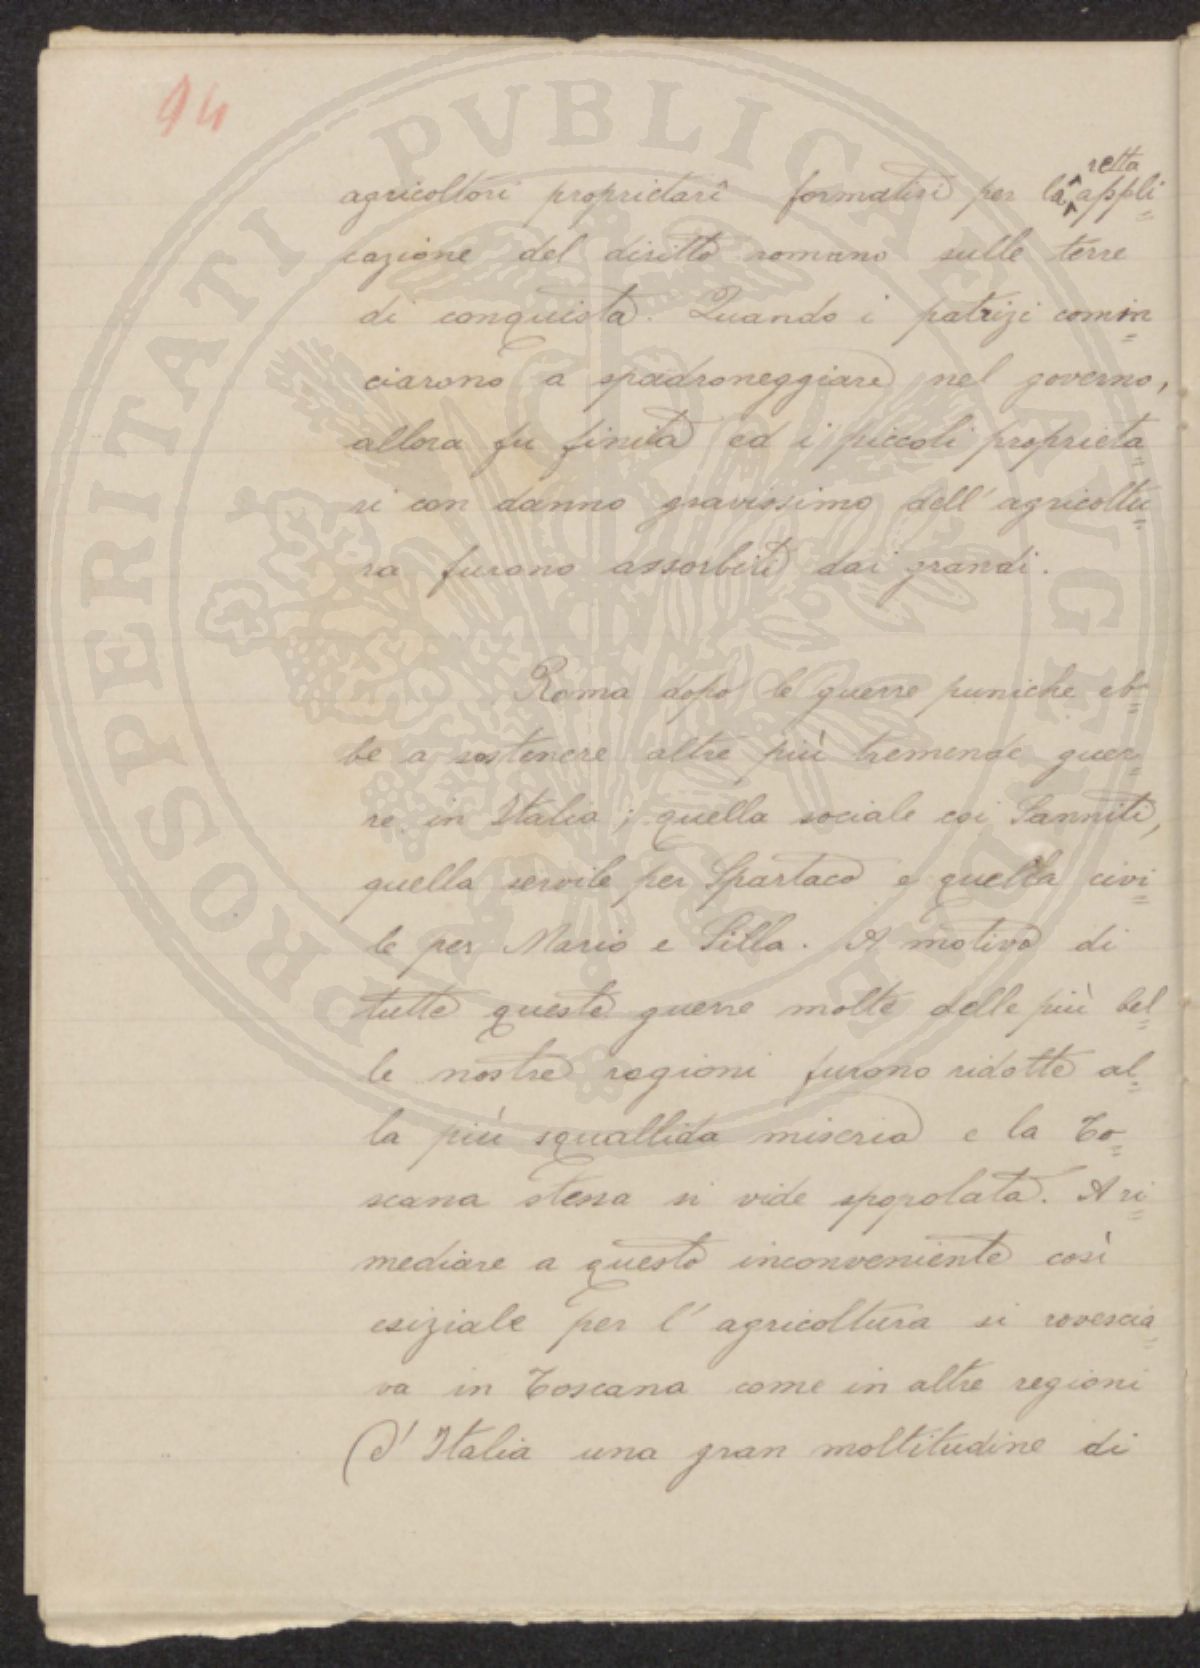 94
retta
agricoltori proprietarî formatisi per la appli=
cazione del diritto romano sulle terre
di conquista. Quando i patrizi comin=
ciarono a spadroneggiare nel governo,
allora fu finita ed i piccoli proprieta=
ri con danno gravissimo dell'agricoltu=
ra furono assorbiti dai grandi.
Roma dopo le guerre puniche eb=
be a sostenere altre più tremende guer=
re in Italia; quella sociale coi Sanniti,
quella servile per Spartaco e quella civi=
le per Mario e Silla. A motivo di
tutte queste guerre molte delle più bel=
le nostre regioni furono ridotte al=
la più squallida miseria e la To=
scana stessa si vide spopolata. A ri=
mediare a questo inconveniente così
esiziale per l'agricoltura si rovescia=
va in Toscana come in altre regioni
d'Italia una gran moltitudine di
PROSPERITATI PVBLICAE AVGENDAE